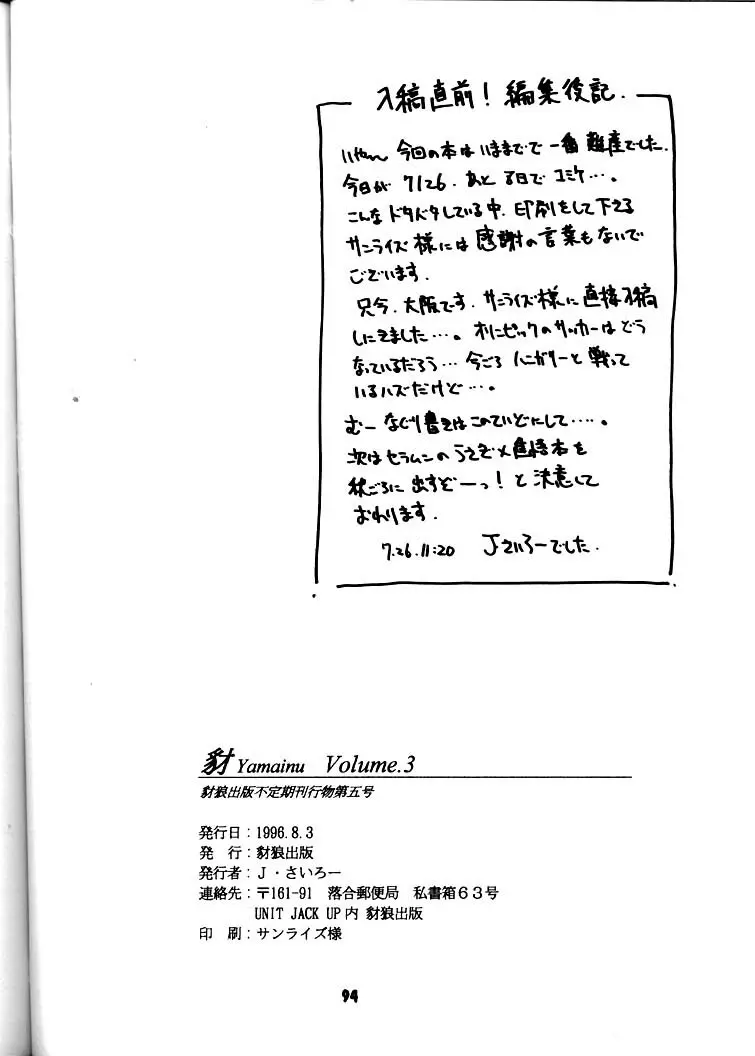 入稿直前！編集後記．
いやーん 今回の本はいままでで一番難産でした．
今日が 7/26．あと8日でコミケ…。
こんなドタバタしている中．印刷をして下さる
サンライズ様には感謝の言葉もないで
ございます．
只今、大阪です．サンライズ様に直接入稿
しにきました…。オリピックのサッカーはどう
なっているだろう…今ごろハンガリーと戦って
いるハズだけど…。
むー なぐり書きはこのていどにして……。
次はセラムンのうさぎ×本を
秋ごろに出すぞーっ！と決意して
おわります．
7.26.11:20 Jさいろーでした．
豺 Yamainu Volume.3
豺狼出版不定期刊行物第五号
発行日：1996.8.3
発　行：豺狼出版
発行者：Ｊ・さいろー
連絡先：〒161-91　落合郵便局　私書箱６３号
UNIT JACK UP内 豺狼出版
印　刷：サンライズ様
94